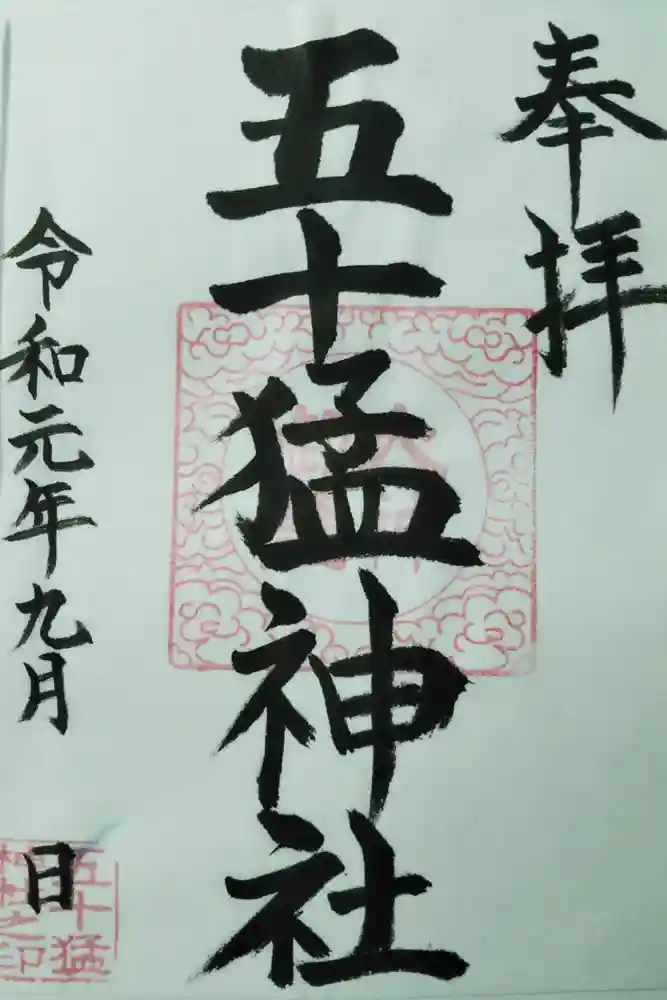 奉拝
五十猛神社
令和元年九月 日
五十猛
神社之印